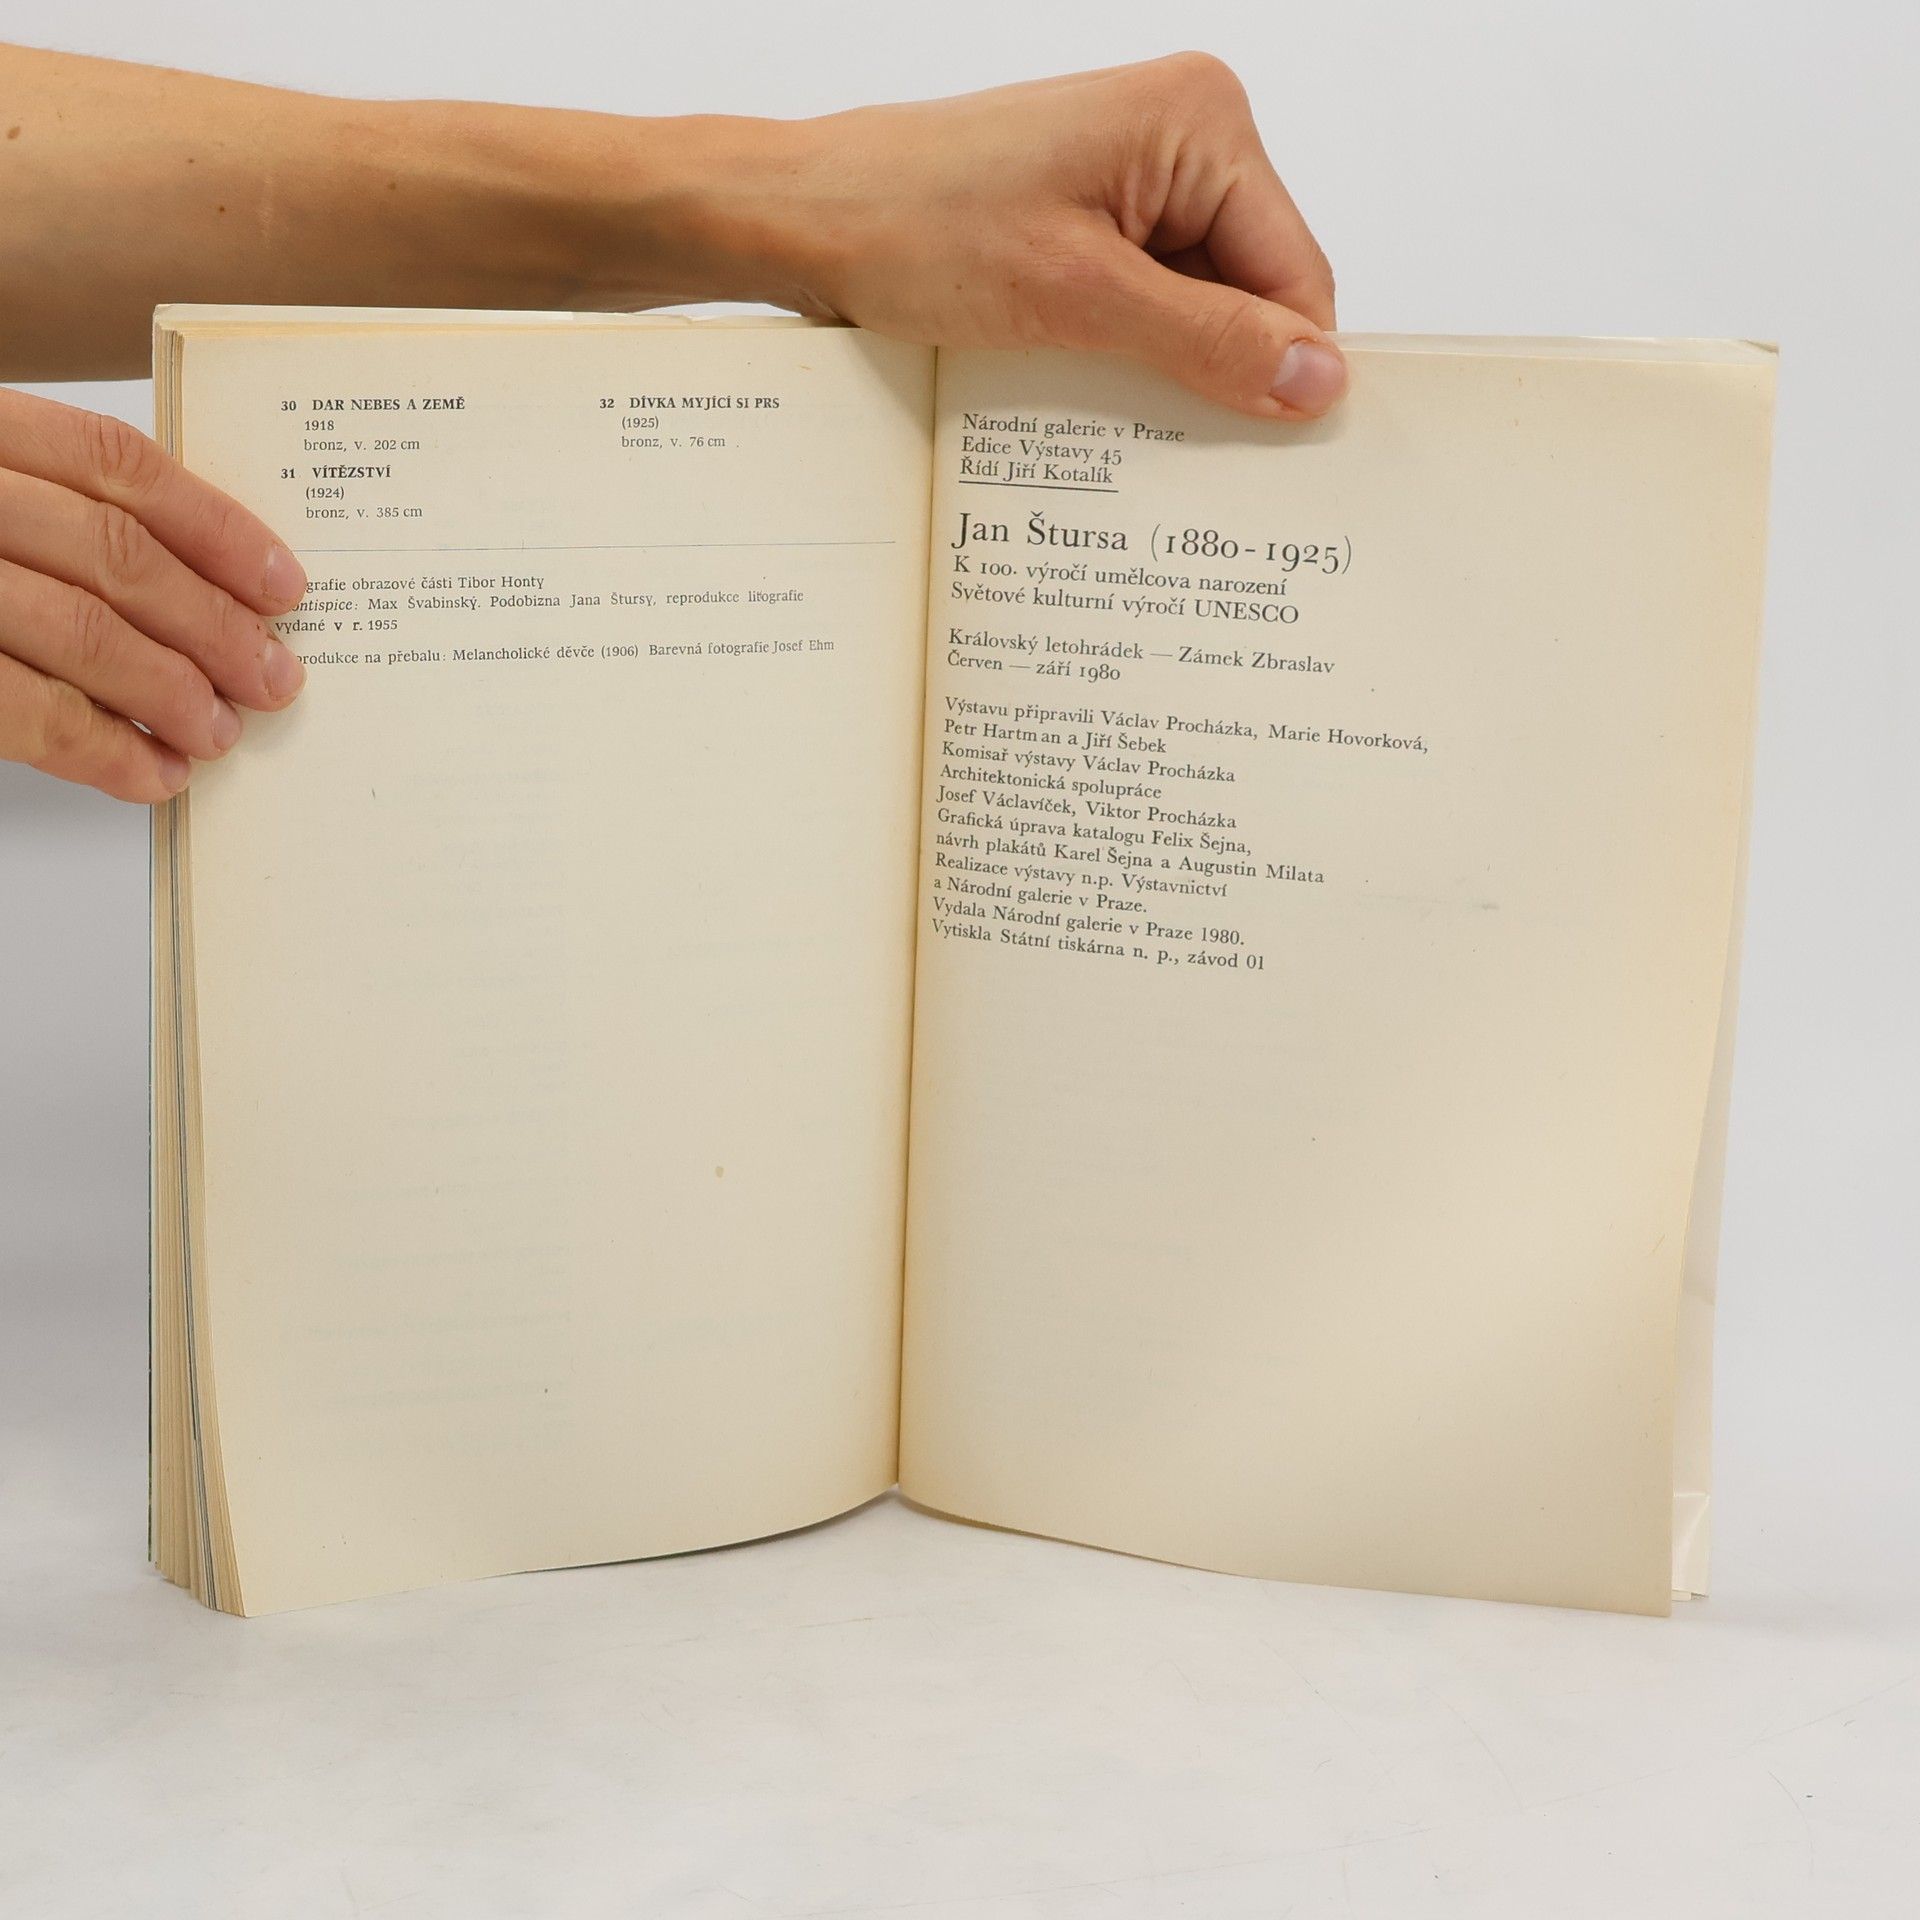 30 DAR NEBES A ZEMĚ
1918
bronz, v. 202 cm
31 VÍTĚZSTVÍ
(1924)
bronz, v. 385 cm
32 DÍVKA MYJÍCÍ SI PRS
(1925)
bronz, v. 76 cm
obrazové části Tibor Honty
Max Švabinský. Podobizna Jana Štursy, reprodukce litografie
vydané v r. 1955
na přebalu: Melancholické děvče (1906) Barevná fotografie Josef Ehm
Národní galerie v Praze
Edice Výstavy 45
Řídí Jiří Kotalík
Jan Štursa (1880-1925)
K 100. výročí umělcova narození
Světové kulturní výročí UNESCO
Královský letohrádek — Zámek Zbraslav
Červen — září 1980
Výstavu připravili Václav Procházka, Marie Hovorková,
Petr Hartman a Jiří Šebek
Komisař výstavy Václav Procházka
Architektonická spolupráce
Josef Václavíček, Viktor Procházka
Grafická úprava katalogu Felix Šejna,
návrh plakátů Karel Šejna a Augustin Milata
Realizace výstavy n.p. Výstavnictví
a Národní galerie v Praze.
Vydala Národní galerie v Praze 1980.
Vytiskla Státní tiskárna n. p., závod 01